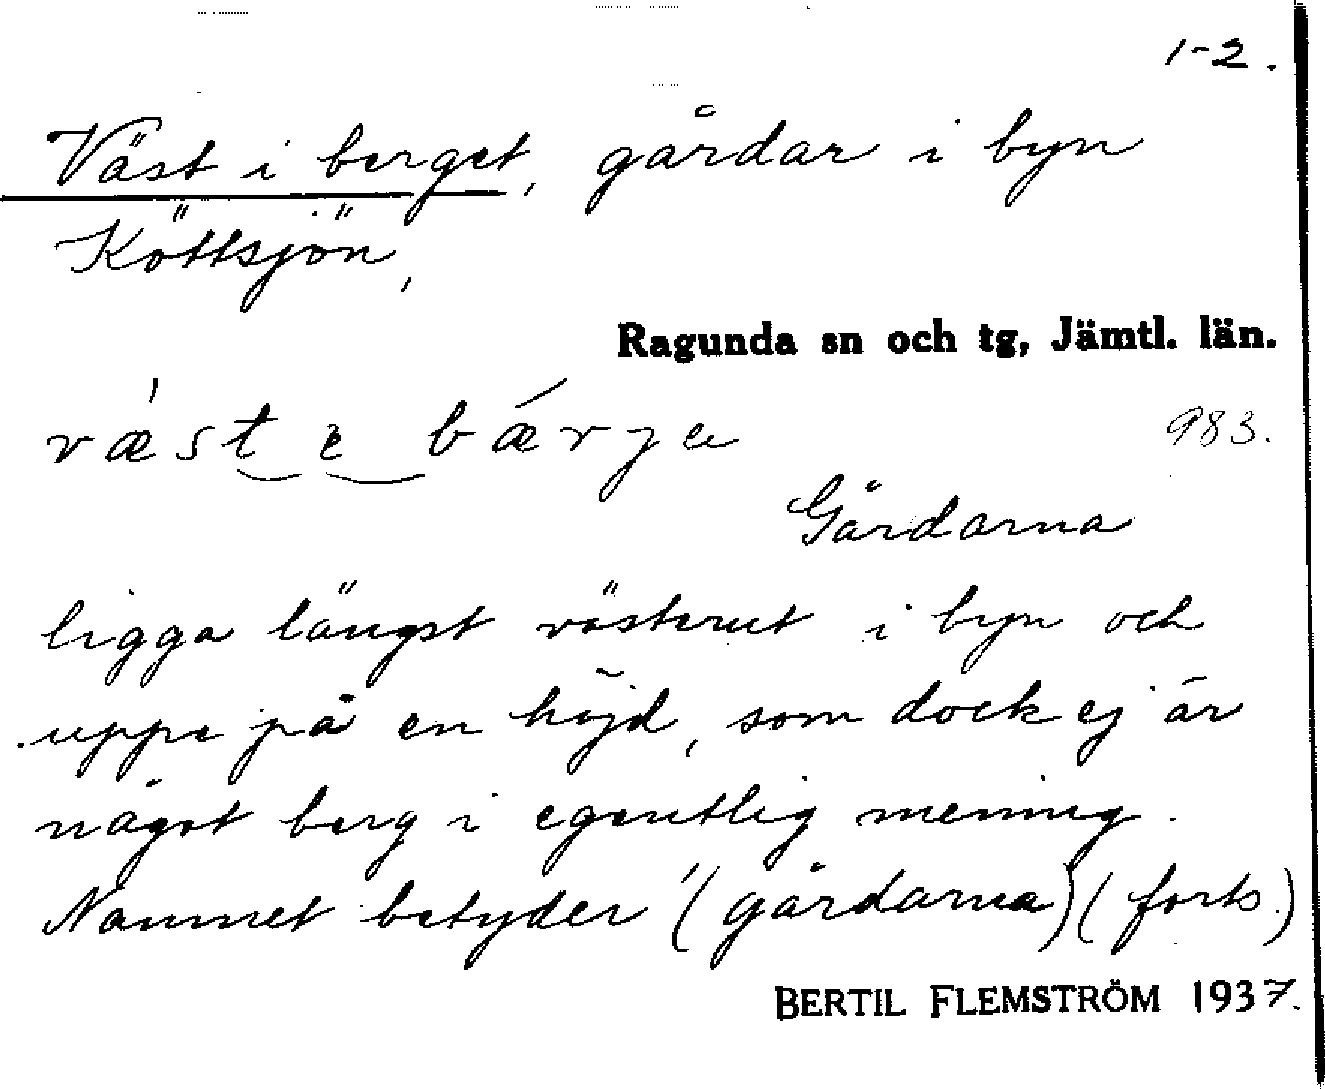 1-2.
Väst i berget, gårdar i byn
Köttsjön,
Ragunda sn och tg, Jämtl. län.
vǽst e bǽrje
983.
Gårdarna
ligga längst västerut i byn och
uppe på en höjd, som dock ej är
något berg i egentlig mening.
Namnet betyder '(gårdarna) (forts.)
BERTIL FLEMSTRÖM 1937.